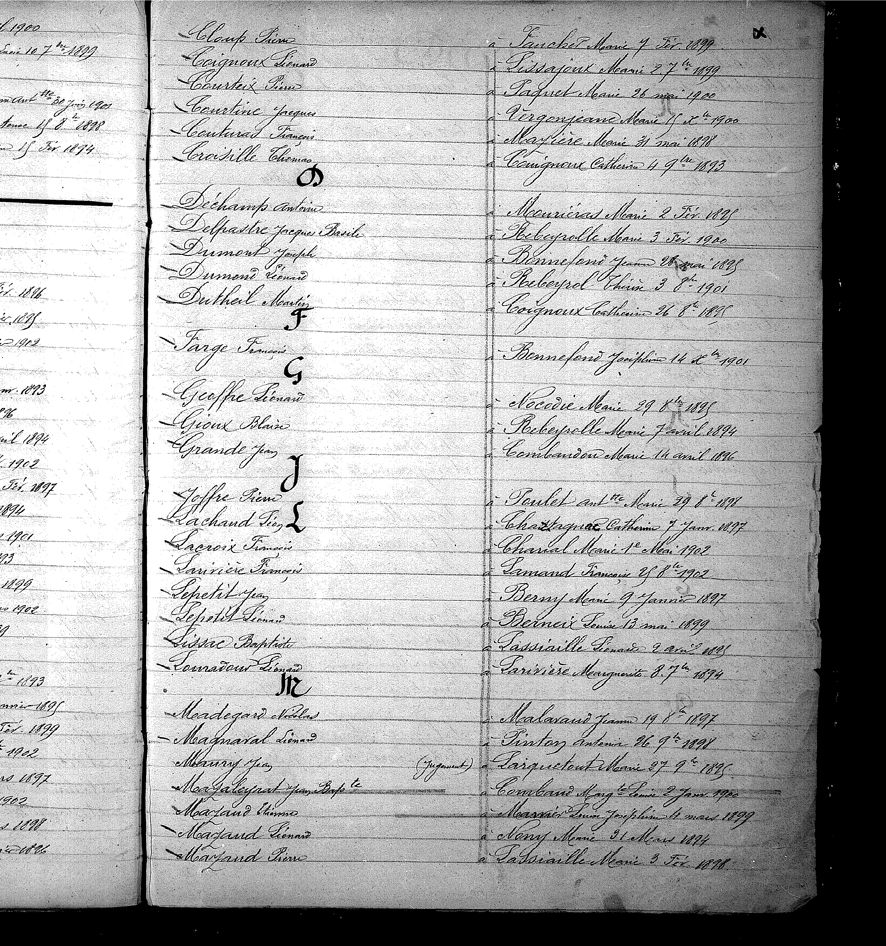 l 1900
10 7bre 1899
30 Juin 1901
15 8bre 1898
15 Fév 1894
1896
1895
1902
1893
1896
avril 1894
1902
Fév. 1897
1894
1901
1893
1899
1902
1893
Janvier 1895
Fév. 1899
1902
mars 1897
1902
1898
1896
x
Cloup Pierre à Fauchet Marie 9 Fév. 1899
Coignoux Léonard à Lissajoux Marie 27 7bre 1899
Courteix Pierre à Paquet Marie 26 mai 1900
Courtine Jacques à Vergonjeanne Marie 15 xbre 1900
Couturas François à Mazière Marie 31 mai 1898
Croisille Thomas à Couignoux Catherine 4 9bre 1893
D
Déchamp Antoine à Mouriéras Marie 2 Fév. 1895
Delpastre Jacques Basile à Rebeyrolle Marie 3 Fév. 1900
Dumont Joseph à Bonnefond Jeanne mai 1895
Dumond Léonard à Rebeyrol Thérèse 3 8bre 1901
Dutheil Martin à Coignoux Catherine 26 8bre 1895
F
Farge François à Bonnefond Joséphine 14 xbre 1901
G
Geoffre Léonard à Nocodie Marie 29 8bre 1895
Gioux Blaise à Rebeyrolle Marie 7 avril 1894
Grande Jean à Combaudon Marie 14 avril 1896
J
Joffre Pierre à Poulet antte Marie 29 8bre 1898
L
Lachaud Léon à Chastagnac Catherine 7 Janv. 1897
Lacroix François à Charial Marie 1er Mai 1902
Larivière François à Lamand Françoise 25 8bre 1902
Lepetit Jean à Berny Marie 9 Janvier 1897
Lepetit Léonard à Berneix Louise 13 mai 1899
Lissac Baptiste à Lassiaille Léonarde 2 avril 1895
Louradour Léonard à Larivière Marguerite 8. 7bre 1894
M
Madegard Nicolas à Malaraud Jeanne 19 8bre 1897
Magnaval Léonard à Pinton Antonia 26 9bre 1898
Maury Jean (Jugement) à Parquetout Marie 27 9bre 1895
Mazaleyrat Jean Bapte à Combaud Margte Louise 2 Janv. 1900
Mazaud Etienne à Marnier Louise Joséphine 11 mars 1899
Mazaud Léonard à Neny Marie 31 Mars 1894
Mazaud Pierre à Lassiaille Marie 3 Fév 1898